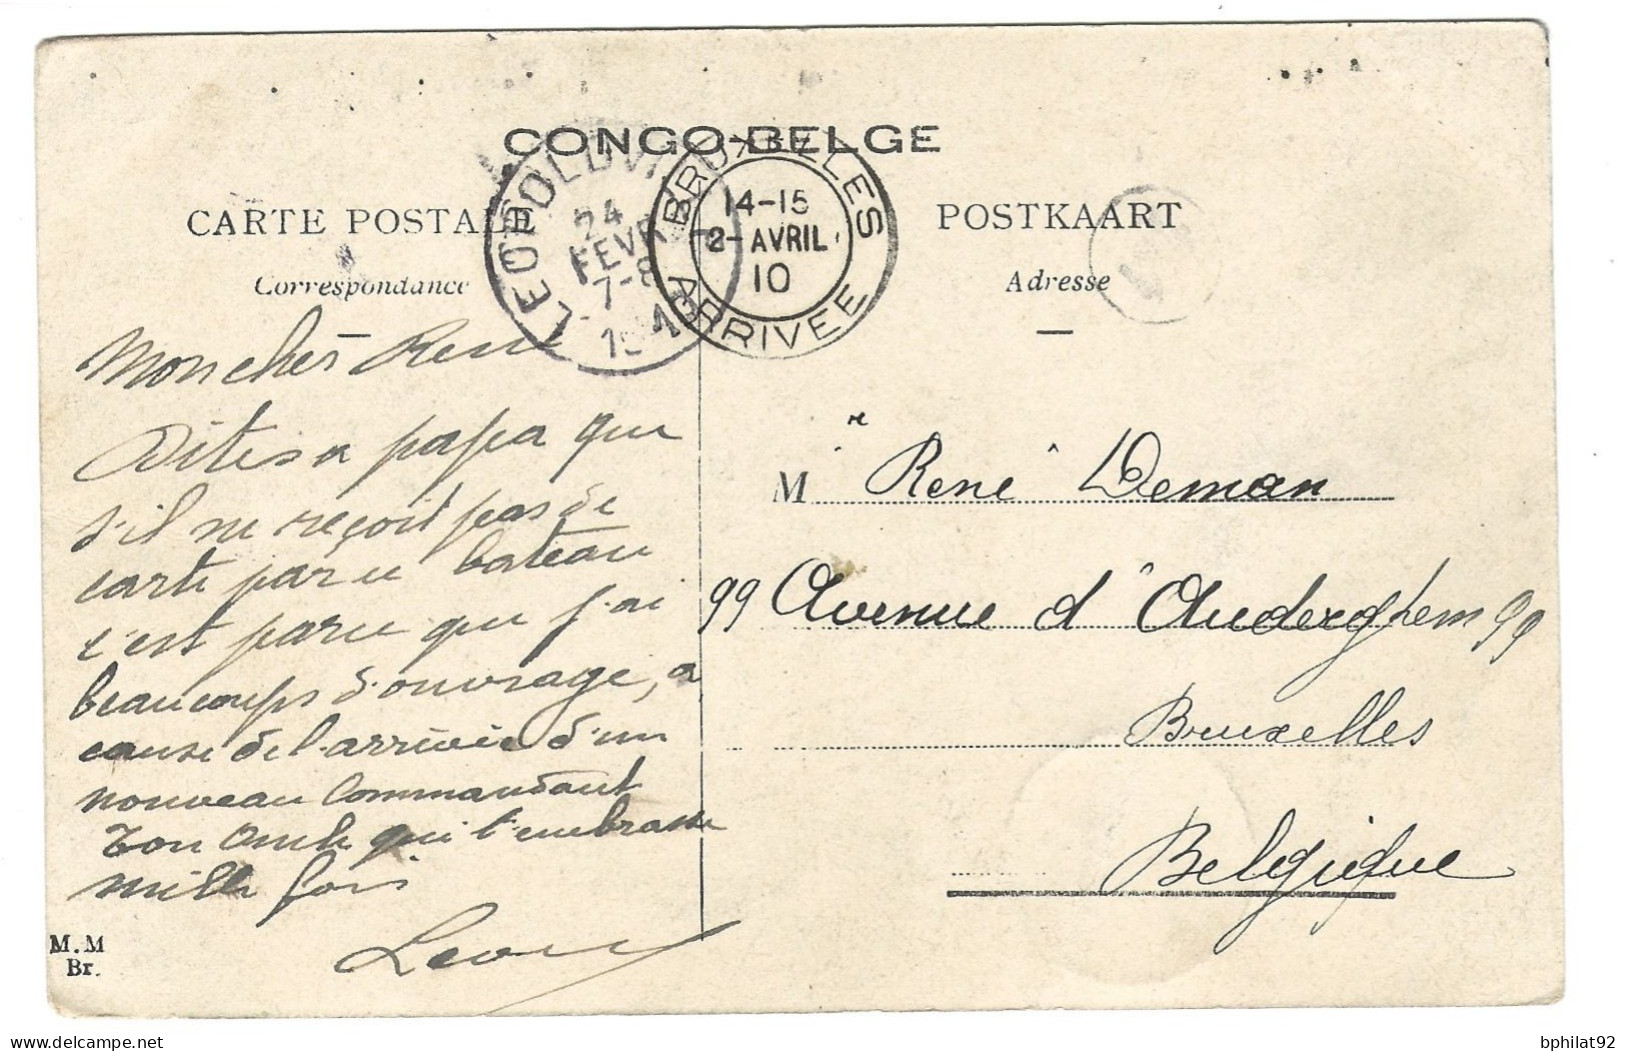 CONGO-BELGE
CARTE POSTALE
POSTKAART
Correspondance
Adresse
LEOPOLDVI
24
FEVR
7-8
BRUXELLES
14-15
2-AVRIL
10
ARRIVEE
Mon cher René
Dites a papa que
s'il ne reçoit pas de
carte par ce bateau
c'est parce que j'ai
beaucoups d'ouvrage, a
cause de l'arrivée d'un
nouveau Commandant
Ton Oncle qui t'embrasse
mille fois
Leon
M r René Deman
99 Avenue d'Auderghem 99
Bruxelles
Belgique
M.M
Br.
bphilat92